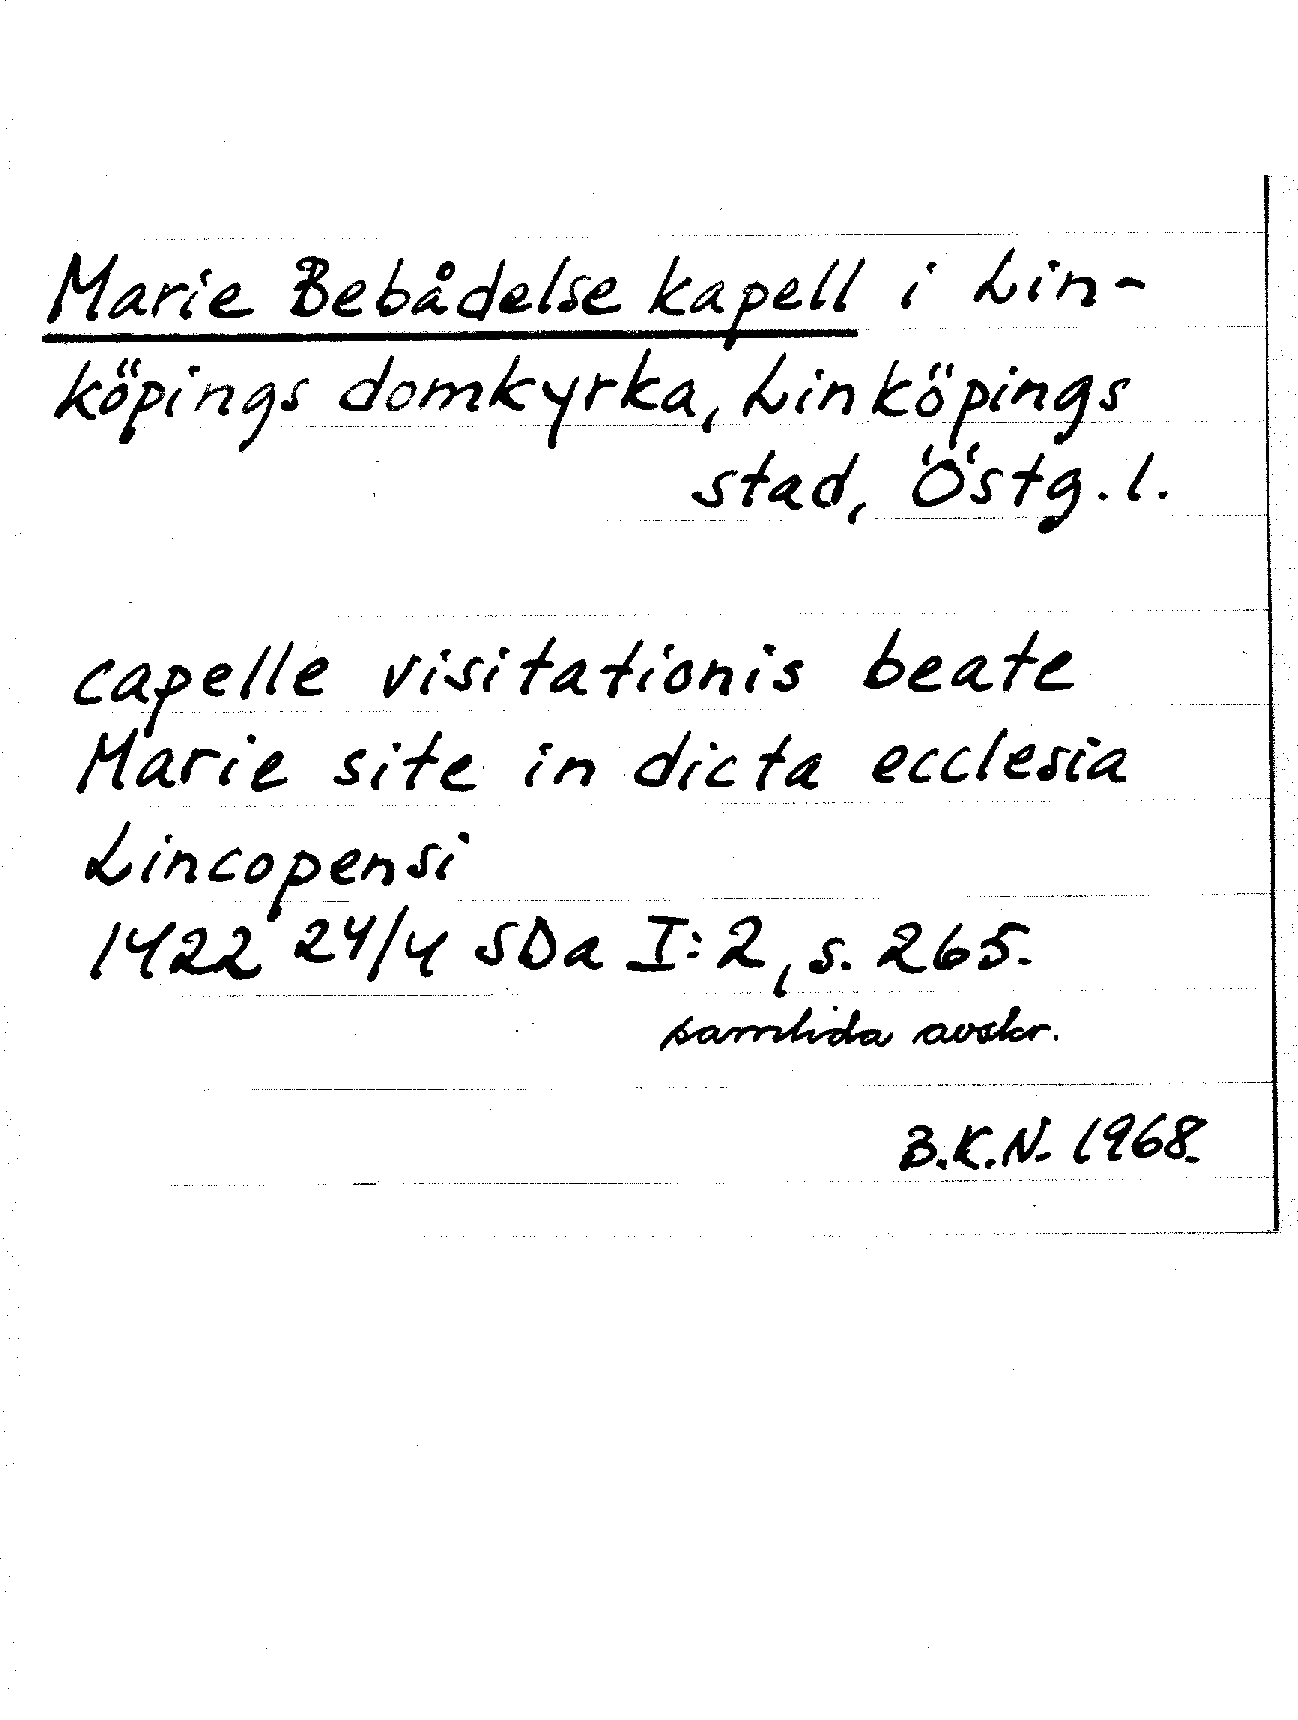 Marie Bebådelse kapell i Lin-
köpings domkyrka, Linköpings
stad, Östg. l.
capelle visitationis beate
Marie site in dicta ecclesia
Lincopensi
1422 24/4 SDa I:2, s. 265.
samtida avskr.
B.K.N. 1968.